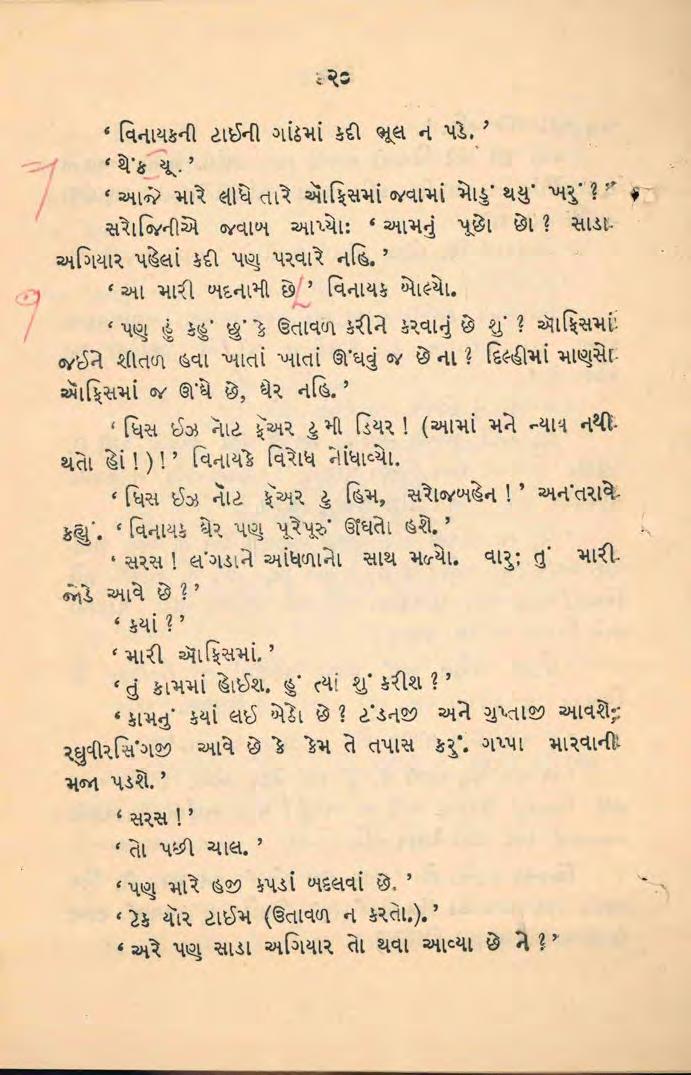 ૨૦
‘ વિનાયકની ટાઈની ગાંઠમાં કદી ભૂલ ન પડે. ’
‘ થેંક યૂ. ’
‘ આજે મારે લીધે તારે ઑફિસમાં જવામાં મોડું થયું ખરું ? ’
સરોજિનીએ જવાબ આપ્યો: ‘ આમનું પૂછો છો ? સાડા
અગિયાર પહેલાં કદી પણ પરવારે નહિ. ’
‘ આ મારી બદનામી છે ’ વિનાયક બોલ્યો.
‘ પણ હું કહું છું કે ઉતાવળ કરીને કરવાનું છે શું ? ઑફિસમાં
જઈને શીતળ હવા ખાતાં ખાતાં ઊંઘવું જ છે ના ? દિલ્હીમાં માણસો
ઑફિસમાં જ ઊંઘે છે, ઘેર નહિ. ’
‘ ધિસ ઈઝ નૉટ ફૅઅર ટુ મી ડિયર ! (આમાં મને ન્યાય નથી
થતો હોં ! ) ! ’ વિનાયકે વિરોધ નોંધાવ્યો.
‘ ધિસ ઈઝ નૉટ ફૅઅર ટુ હિમ, સરોજબહેન ! ’ અનંતરાવે
કહ્યું. ‘ વિનાયક ઘેર પણ પૂરેપૂરું ઊંઘતો હશે. ’
‘ સરસ ! લંગડાને આંધળાનો સાથ મળ્યો. વારુ; તું મારી
જોડે આવે છે ? ’
‘ કયાં ? ’
‘ મારી ઑફિસમાં. ’
‘ તું કામમાં હોઈશ. હું ત્યાં શું કરીશ ? ’
‘ કામનું કયાં લઈ બેઠો છે ? ટંડનજી અને ગુપ્તાજી આવશે;
રઘુવીરસિંગજી આવે છે કે કેમ તે તપાસ કરું. ગપ્પા મારવાની
મજા પડશે. ’
‘ સરસ ! ’
‘ તો પછી ચાલ. ’
‘ પણ મારે હજી કપડાં બદલવાં છે. ’
‘ ટેક યૉર ટાઈમ (ઉતાવળ ન કરતો.). ’
‘ અરે પણ સાડા અગિયાર તો થવા આવ્યા છે ને ? ’